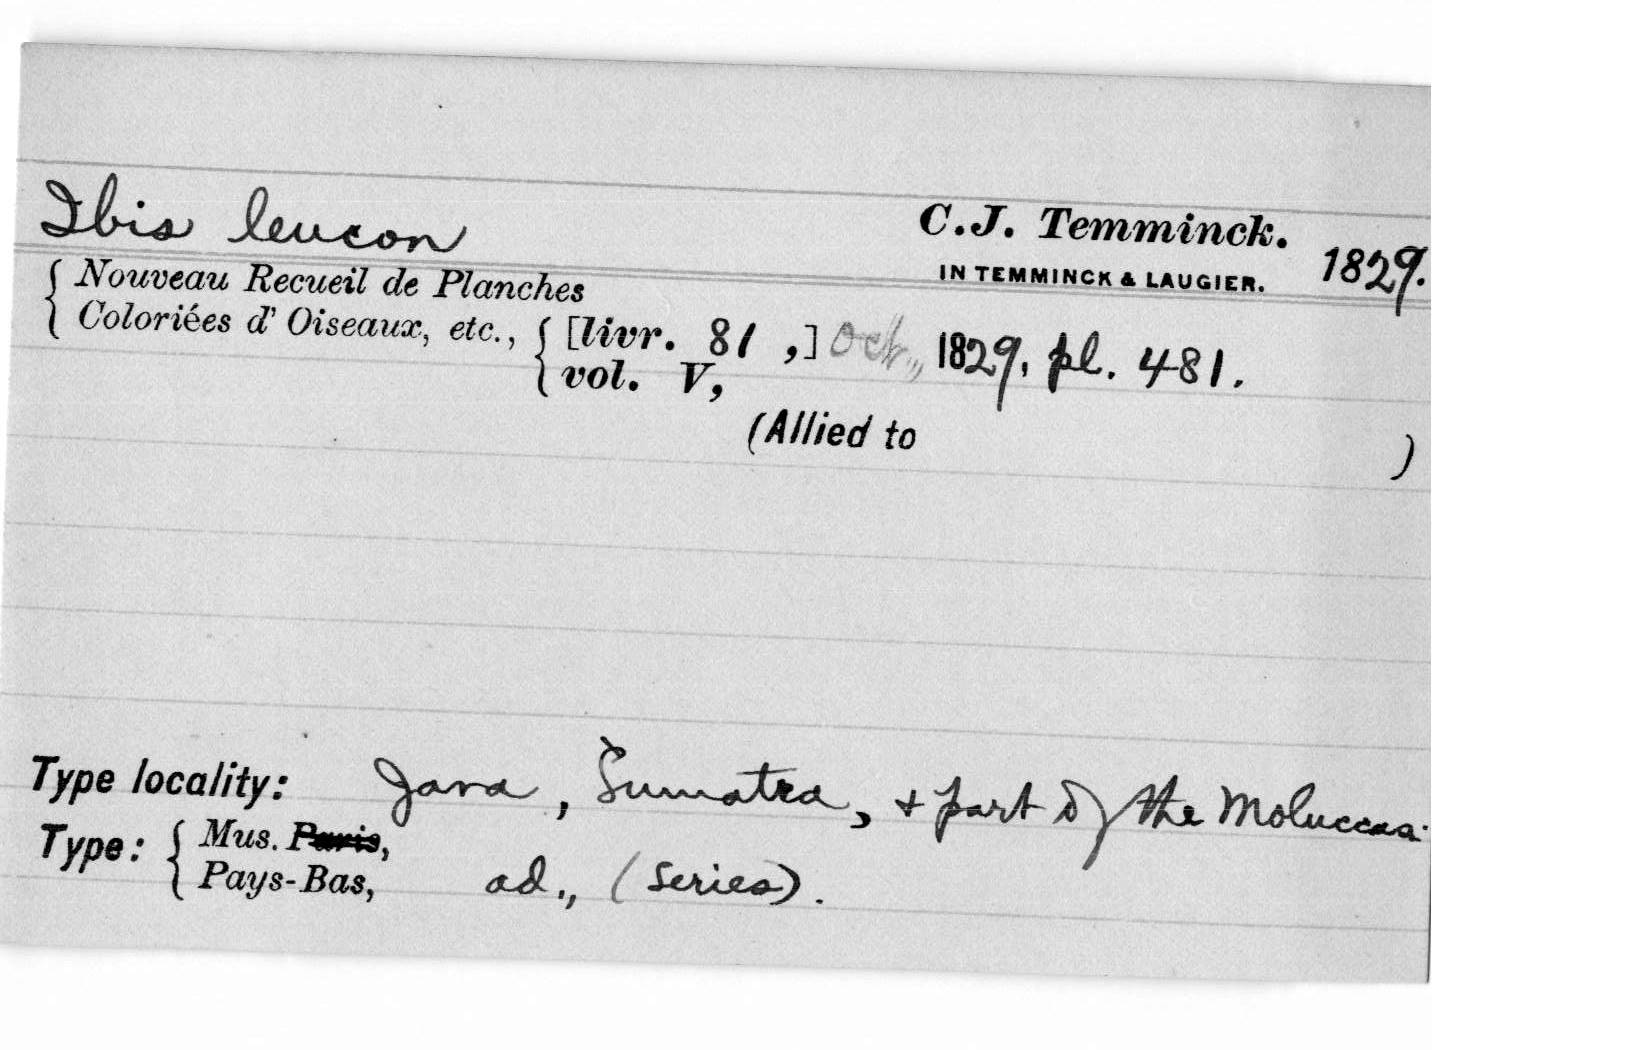 Ibis leucon C.J. Temminck.
IN TEMMINCK & LAUGIER. 1829.
{ Nouveau Recueil de Planches
Coloriées d' Oiseaux, etc., { [livr. 81 ,] Oct., 1829, pl. 481.
vol. V,
(Allied to )
Type locality: Java, Sumatra, & part of the Moluccas.
Type: { Mus. Paris,
Pays-Bas, ad., (series).